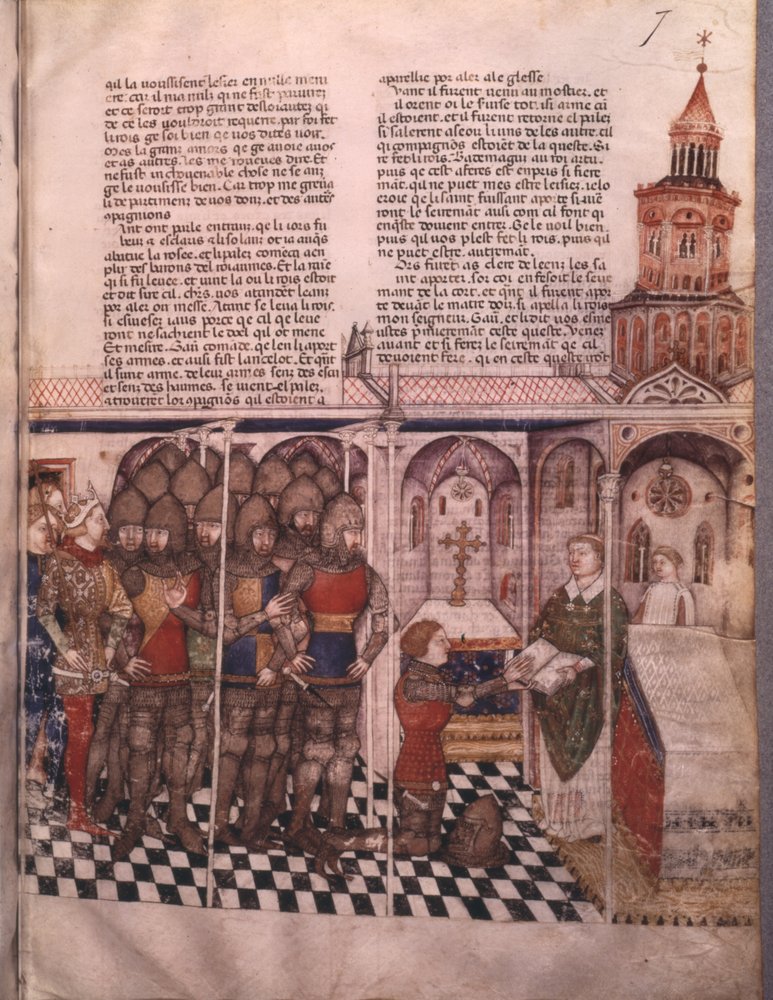 7
qil la uoussisent lesier en nulle mani
ere. car il nia nuls qi ne fust pariurez
et ce seroit trop grant desloiautez qi
de ce les uouldroit requerre. par foi fet
li rois ge soi bien qe uos dites uoir.
Mes la grant amors qe ge auoie auos
et as autres. les me
ne fust chose ne se
ge le uousisse bien. Car trop me greua
li departiment de uos donz. et des autres
Ant ont parle entraus. qe li iors fu
abatue la rosee. et li pales comença a en
plir des barons del roiaumes. Et la raïe
qi si fu leuee. et uint la ou li rois estoit
et dit sire cil. chrs. uos atandent leanz
por aler ou messe. Atant se leua li rois.
si essuie ses iauz porce qe cil qe le uer
ront ne sachent le doel qil ot mene
Et mesire. Gaũ comãde. qe len li aport
ses armes. et ausi fist lancelot. Et qñt
il sunt arme. de leur armes senz des escu
et senz des haumes. se uient el pales.
a trouerent lor cõpagnõs qil estoient a
aparellie por aler ale glesse
Vant il furent uenu au mostier. et
il orent oi le seruise tot. si arme cũ
il estoient. et il furent retorne el pales
si salerent aseoir li uns de les autre. cil
qi compagnõs estoiẽt de la queste. Si
re fet li rois. Bademagu au roi artu.
puis qe cest aferes est enpris si fiere
mãt. qil ne puet mes estre lesiez. ie lo
eroie qe li saint fussant aporte. si iuer
ront le seiremãt ausi com cil font qi
en qãste doiuent entrer. Ge le uoil bien.
puis qil uos plest fet li rois. puis qil
ne puet estre. autremãt.
Ors furẽt as clers de leenz les sa
int aporter. sor coi en fesoit le seire
mant de la cort. et qñt il furent apor
te deuãt le mait dois. si apella li rois
mon seigneur. Gaũ. et li dit uos esme
ustes p̃mieremãt ceste queste. Venez
auant et si ferez le seiremãt qe cil
deuoient fere. qi en ceste queste